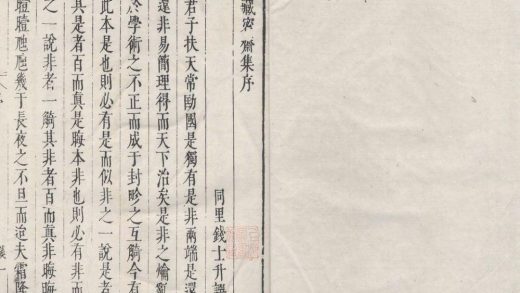 藏密齋集序
同里錢士升譔
君子扶天常勖國是獨有是非兩端是還
非易簡理得而天下治矣是非之爚
於學術之不正而成于封畛之互觭今有
此本是也則必有是而似非之一說是者
其是者百而真是晦本非也則必有非而
之一說非者一觭其非者百而真非晦晦
曀曀虺虺幾于長夜之不旦而迨夫霜降